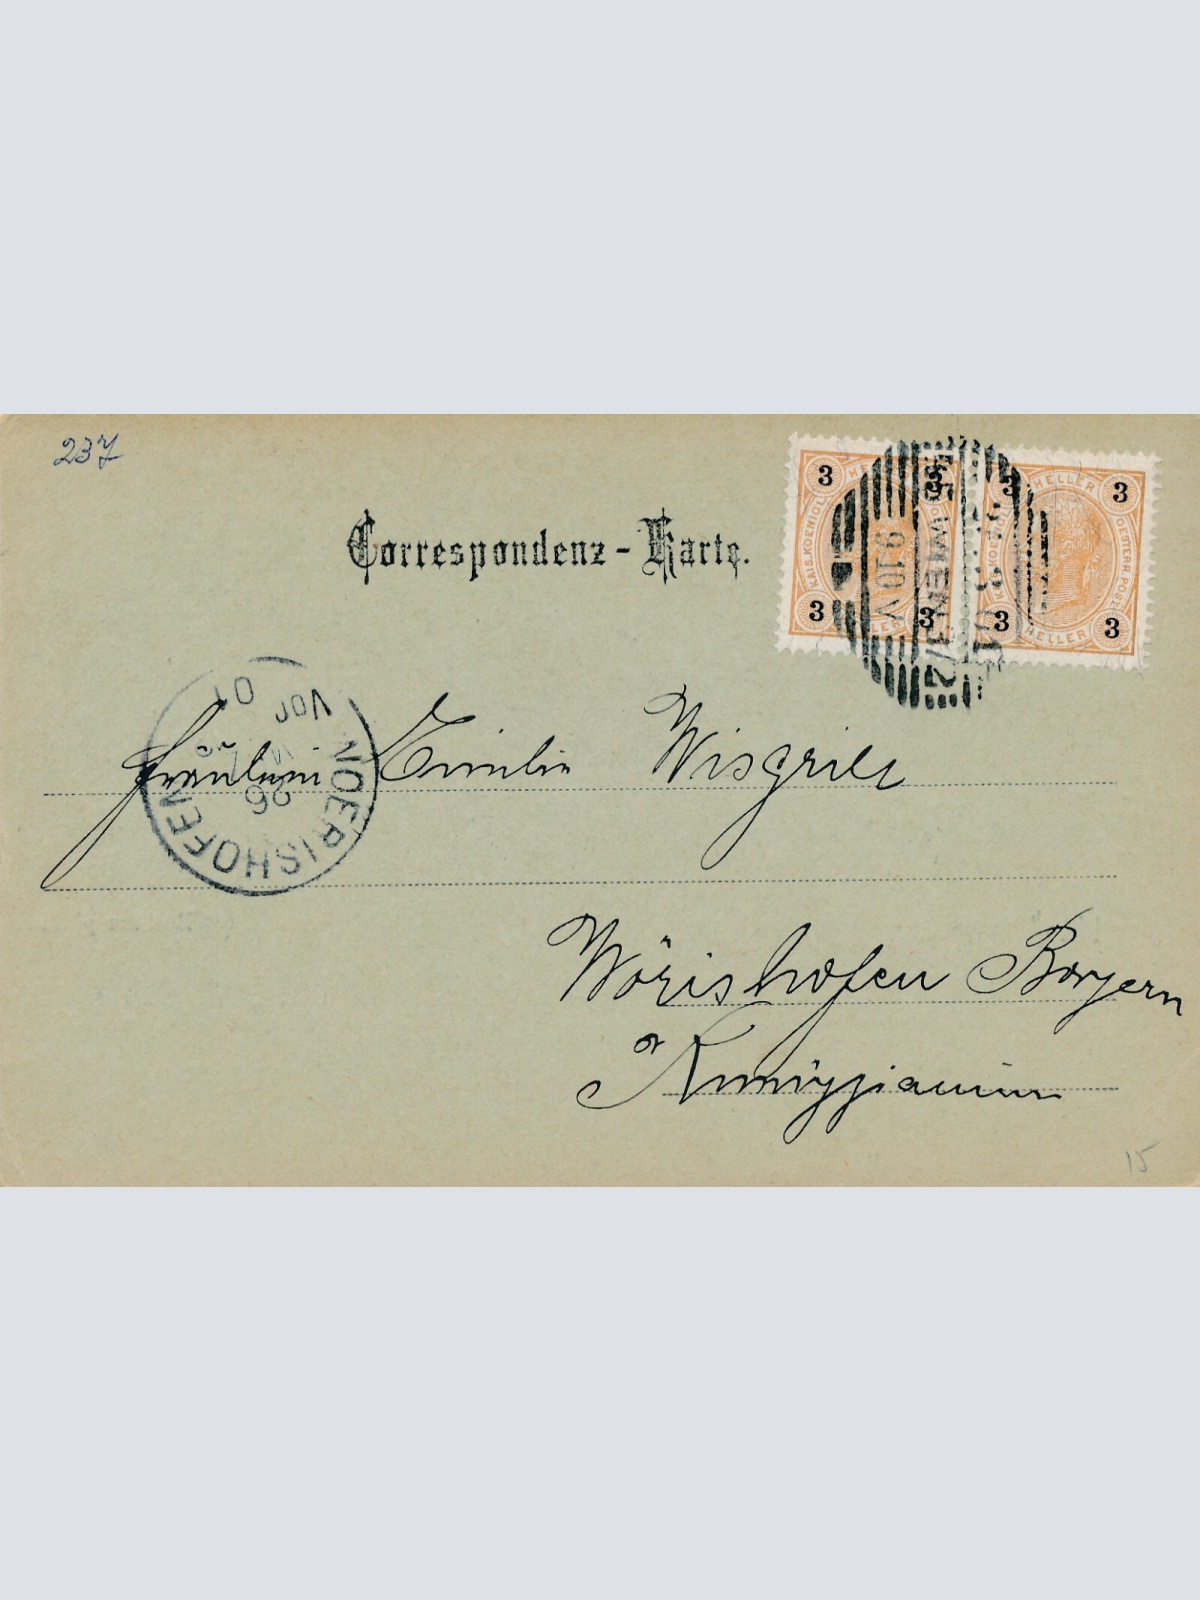 237
Correspondenz-Karte.
3 3 3 3
KAIS. KOENIGL. OESTERR. POST.
HELLER
3 3 3 3
HELLER
WIEN
9.10 V
01
Vor
26
WOERISHOFEN
Fräulein Emilie Wisgrill
Wörishofen Bayern
15